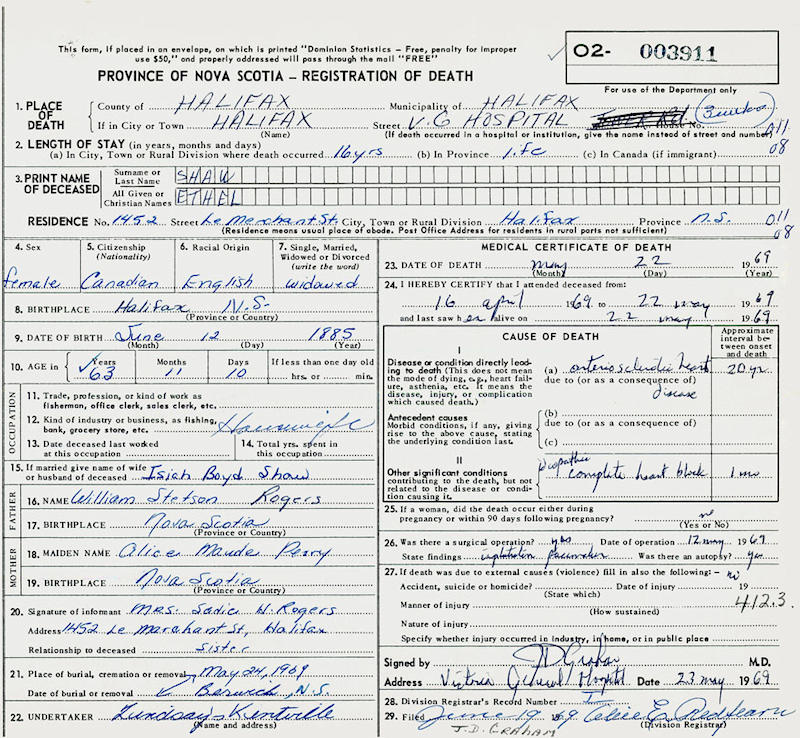 This form, if placed in an envelope, on which is printed "Dominion Statistics – Free, penalty for improper
use $50," and properly addressed will pass through the mail "FREE"
O2- 003911
PROVINCE OF NOVA SCOTIA – REGISTRATION OF DEATH
For use of the Department only
1. PLACE OF DEATH
County of HALIFAX Municipality of HALIFAX
If in City or Town HALIFAX Street V.G HOSPITAL House No.
(Name) (If death occurred in a hospital or institution, give the name instead of street and number)
011
08
2. LENGTH OF STAY (in years, months and days)
(a) In City, Town or Rural Division where death occurred 16 yrs (b) In Province life (c) In Canada (if immigrant)
3. PRINT NAME OF DECEASED
Surname or Last Name SHAW
All Given or Christian Names ETHEL
RESIDENCE No. 1452 Street Le Merchant St. City, Town or Rural Division Halifax Province N.S.
(Residence means usual place of abode. Post Office Address for residents in rural parts not sufficient)
011
08
4. Sex
female
5. Citizenship
(Nationality)
Canadian
6. Racial Origin
English
7. Single, Married, Widowed or Divorced
(write the word)
widowed
8. BIRTHPLACE Halifax N.S.
(Province or Country)
9. DATE OF BIRTH June 12 1885
(Month) (Day) (Year)
10. AGE in Years Months Days If less than one day old
63 11 10 hrs. or min.
OCCUPATION
11. Trade, profession, or kind of work as
fisherman, office clerk, sales clerk, etc.
12. Kind of industry or business, as fishing,
bank, grocery store, etc. Housewife
13. Date deceased last worked
at this occupation
14. Total yrs. spent in
this occupation
15. If married give name of wife
or husband of deceased Isiah Boyd Shaw
FATHER
16. NAME William Stetson Rogers
17. BIRTHPLACE Nova Scotia
(Province or Country)
MOTHER
18. MAIDEN NAME Alice Maude Perry
19. BIRTHPLACE Nova Scotia
(Province or Country)
20. Signature of informant Mrs. Sadie W. Rogers
Address 1452 Le Marchant St, Halifax
Relationship to deceased Sister
21. Place of burial, cremation or removal May 24, 1969
Date of burial or removal Berwick, N.S.
22. UNDERTAKER Lindsay's Kentville
(Name and address)
MEDICAL CERTIFICATE OF DEATH
23. DATE OF DEATH May 22 1969
(Month) (Day) (Year)
24. I HEREBY CERTIFY that I attended deceased from:
16 april 1969 to 22 may 1969
and last saw her alive on 22 may 1969
CAUSE OF DEATH
Approximate interval between onset and death
I
Disease or condition directly leading to death (This does not mean the mode of dying, e.g., heart failure, asthenia, etc. It means the disease, injury, or complication which caused death.)
(a) arteriosclerotic heart disease 20 yr
due to (or as a consequence of)
Antecedent causes
Morbid conditions, if any, giving rise to the above cause, stating the underlying condition last.
(b)
due to (or as a consequence of)
(c)
II
Other significant conditions
contributing to the death, but not related to the disease or condition causing it.
complete heart block 1 mo
25. If a woman, did the death occur either during
pregnancy or within 90 days following pregnancy? no
(Yes or No)
26. Was there a surgical operation? yes Date of operation 12 may 1969
State findings pacemaker Was there an autopsy? yes
27. If death was due to external causes (violence) fill in also the following:- no
Accident, suicide or homicide? Date of injury 19
(State which)
Manner of injury 412.3
(How sustained)
Nature of injury
Specify whether injury occurred in industry, in home, or in public place
Signed by J D Graham M.D.
Address Victoria General Hospital Date 23 may 1969
28. Division Registrar's Record Number
29. Filed June 19 1969
(Division Registrar)
J.D. GRAHAM